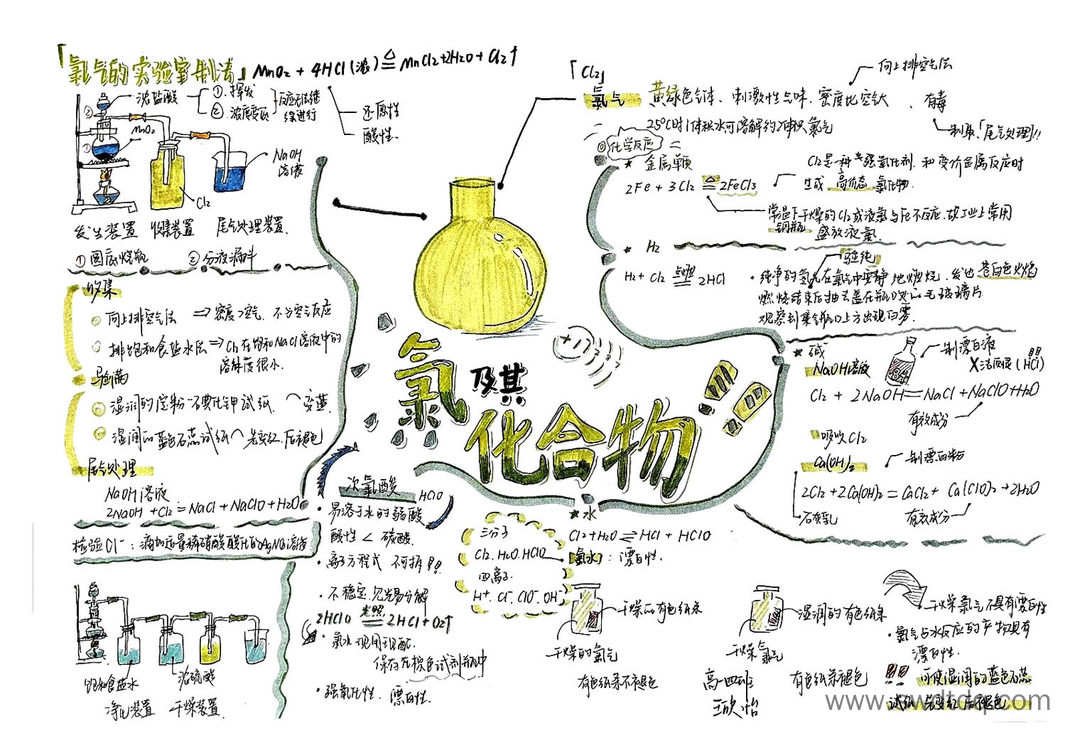 「氯气的实验室制法」MnO₂ + 4HCl(浓) ≜ MnCl₂+2H₂O + Cl₂↑
浓盐酸
①. 挥发
②. 浓度变低
反应无法继续进行
还原性
酸性.
MnO₂
Cl₂
NaOH
溶液
发生装置 收集装置 尾气处理装置.
①圆底烧瓶 ②分液漏斗
收集
向上排空气法 ⇒密度>空气、不与空气反应
排饱和食盐水法⇒Cl₂在饱和NaCl溶液中的
溶解度很小.
验满
湿润的淀粉-碘化钾试纸 变蓝.
湿润的蓝色石蕊试纸 先变红.后褪色
尾气处理
NaOH溶液
2NaOH + Cl₂=NaCl+NaClO+H₂O
检验Cl⁻:滴加足量稀硝酸酸化的AgNO₃溶液
饱和食盐水 浓硫酸
净化装置 干燥装置.
「Cl₂」
氯气 黄绿色气体、刺激性气味、密度比空气大、有毒
向上排空气法
制取「尾气处理」!!
25℃时1体积水可溶解约2体积氯气
化学反应
金属单质
2Fe + 3Cl₂ ≜ 2FeCl₃
Cl₂是一种强氧化剂、和变价金属反应时
生成 高价态 氯化物.
常温下干燥的Cl₂或液氯与Fe不反应.故工业上常用
钢瓶 盛放液氯
H₂
H₂+ Cl₂ 点燃 2HCl
·纯净的氢气在氯气中安静地燃烧.发出苍白色火焰
观察到集气瓶口上方出现白雾.
碱
NaOH溶液
制漂白液
X洁厕灵(HCl)
Cl₂ + 2NaOH=NaCl+NaClO+H₂O
有效成分
吸收Cl₂
Ca(OH)₂
制漂白粉
2Cl₂+2Ca(OH)₂=CaCl₂+ Ca(ClO)₂+2H₂O
石灰乳
有效成分
氯及其
化合物
次氯酸 HClO
·易溶于水的弱酸
酸性 < 碳酸.
·离子方程式 不可拆!!
·不稳定.见光易分解
2HClO 光照 2HCl+O₂↑
氯水现用现配.
保存在棕色试剂瓶中
·强氧化性、漂白性.
三分子
Cl₂.H₂O.HClO
四离子
H⁺. Cl⁻.ClO⁻.OH⁻
水
Cl₂+H₂O⇌HCl + HClO
「氯水」:漂白性.
干燥的有色纸条
干燥的氯气
有色纸条不褪色
湿润的有色纸条
干燥氯气
有色纸条褪色
干燥氯气不具有漂白性
·氯气与水反应的产物具有
漂白性.
!! 可使湿润的蓝色石蕊
试纸 先变红后褪色
高一四班
王欣怡
www.swdtdq.com